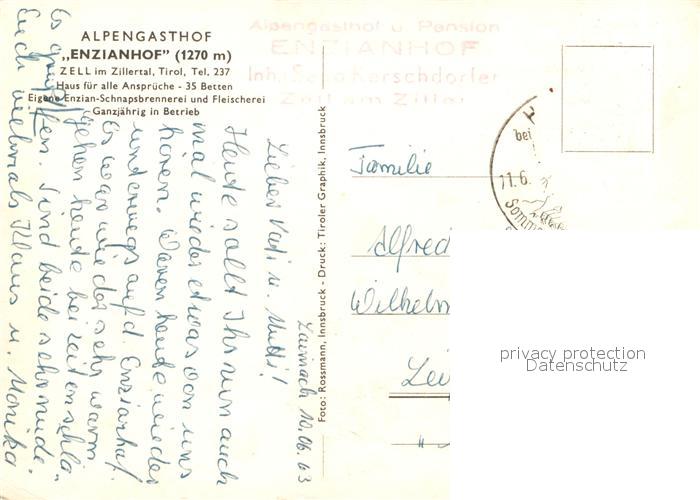 ALPENGASTHOF
„ENZIANHOF" (1270 m)
ZELL im Zillertal, Tirol, Tel. 237
Haus für alle Ansprüche - 35 Betten
Eigene Enzian-Schnapsbrennerei und Fleischerei
Ganzjährig in Betrieb
Alpengasthof u. Pension
ENZIANHOF
Inh. Sepp Kerschdorfer
Zell am Ziller
Foto: Rossmann, Innsbruck - Druck: Tiroler Graphik, Innsbruck
Zaimach 10.06.63
Lieber Vati u. Mutti!
Heute sollt Ihr nun auch
mal wieder etwas von uns
hören. Waren heute wieder
unterwegs auf d. Enzianhof.
Es war wieder sehr warm
gehen heute beizeiten schla-
fen. Sind beide sehr müde.
Es grüßen
Euch vielmals Klaus u. Monika
Familie
Alfred
Wilhelm
Lei
"
bei
11.6.
Somm
privacy protection
Datenschutz